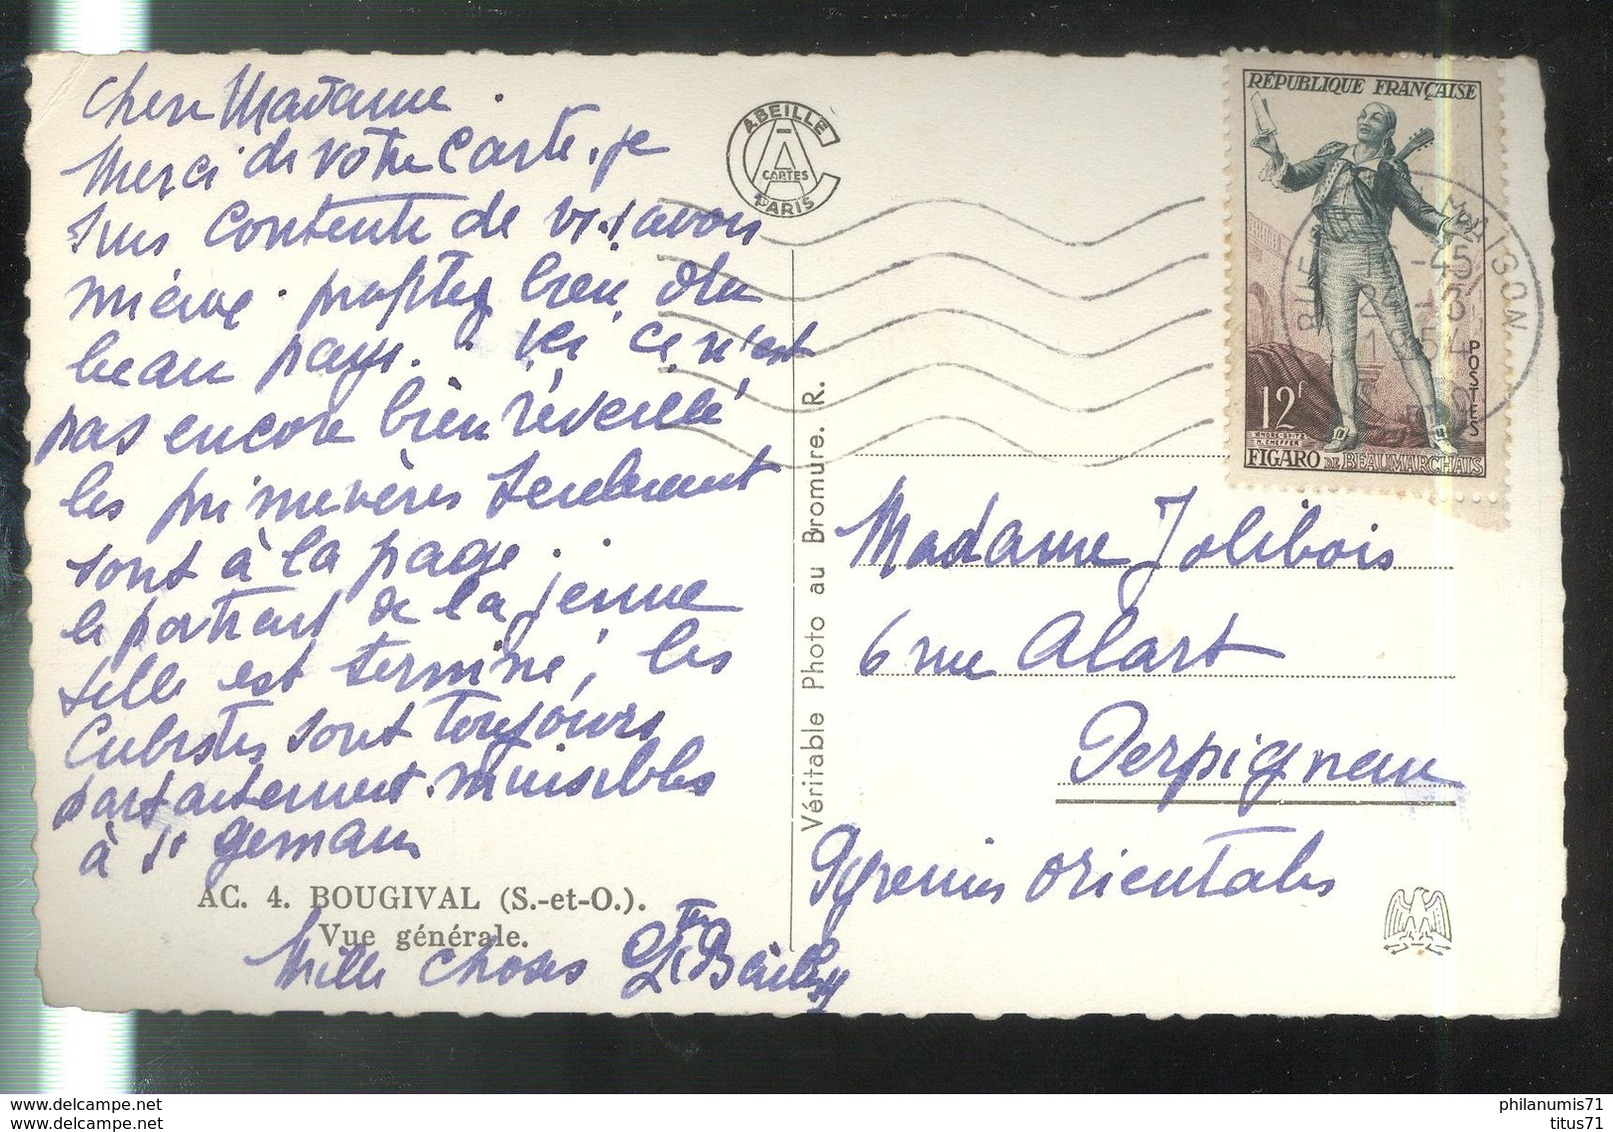 Chère Madame
Merci de votre Carte. je
suis Contente de
même. profitez bien du
beau pays. Ici ce n'est
pas encore bien réveillé
les primevères seulement
sont à la page.
le portrait de la jeune
fille est terminé, les
Cubistes sont toujours
parfaitement
à St germain
AC. 4. BOUGIVAL (S.-et-O.).
Vue générale.
Mille choses
ABEILLE
CARTES
PARIS
Véritable Photo au Bromure. R.
RÉPUBLIQUE FRANÇAISE
POSTES
12F
FIGARO DE BEAUMARCHAIS
-45
1954
Madame Jolibois
6 rue Alart
Perpignan
Pyrenées orientales
www.delcampe.net
www.delcampe.net
philanumis71
titus71